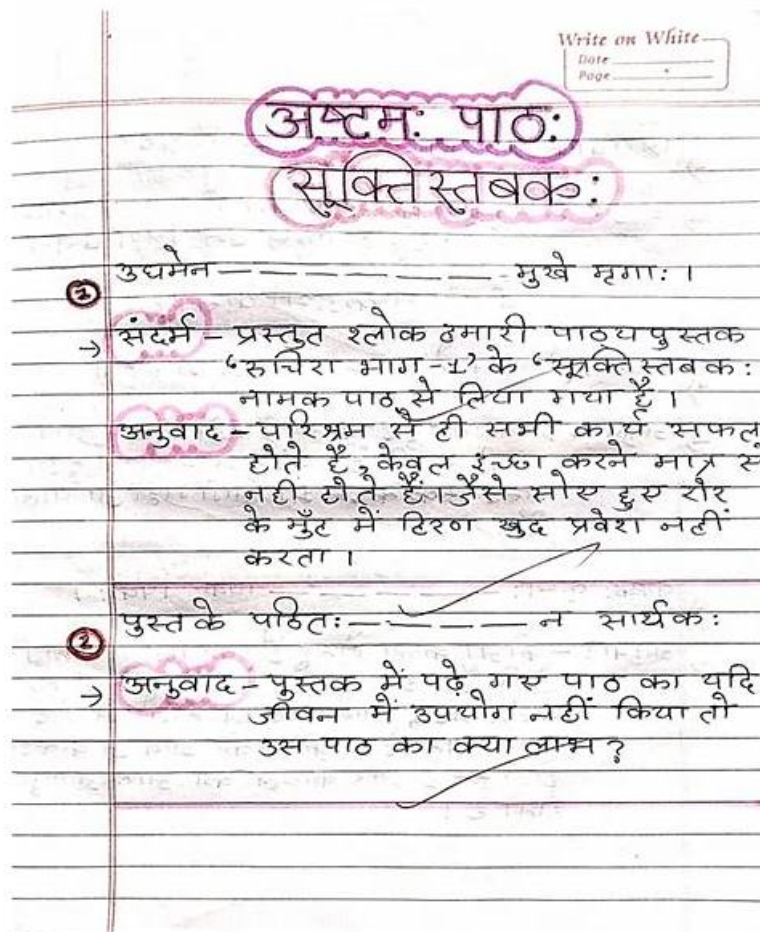 Write on White
Date
Page
अष्टमः पाठः
सूक्तिस्तबकः
① उघमेन — — — — — — — — मुखे मृगाः ।
→ संदर्भ - प्रस्तुत श्लोक हमारी पाठ्यपुस्तक
'रुचिरा भाग-1' के 'सूक्तिस्तबकः
नामक पाठ से लिया गया है ।
अनुवाद - परिश्रम से ही सभी कार्य सफल
होते है, केवल इच्छा करने मात्र से
नही होते हैं। जैसे सोए हुए शेर
के मुँह में हिरण खुद प्रवेश नहीं
करता ।
② पुस्तके पठितः — — — — — न सार्थकः
→ अनुवाद - पुस्तक में पढ़े गए पाठ का यदि
जीवन में उपयोग नहीं किया तो
उस पाठ का क्या लाभ ?